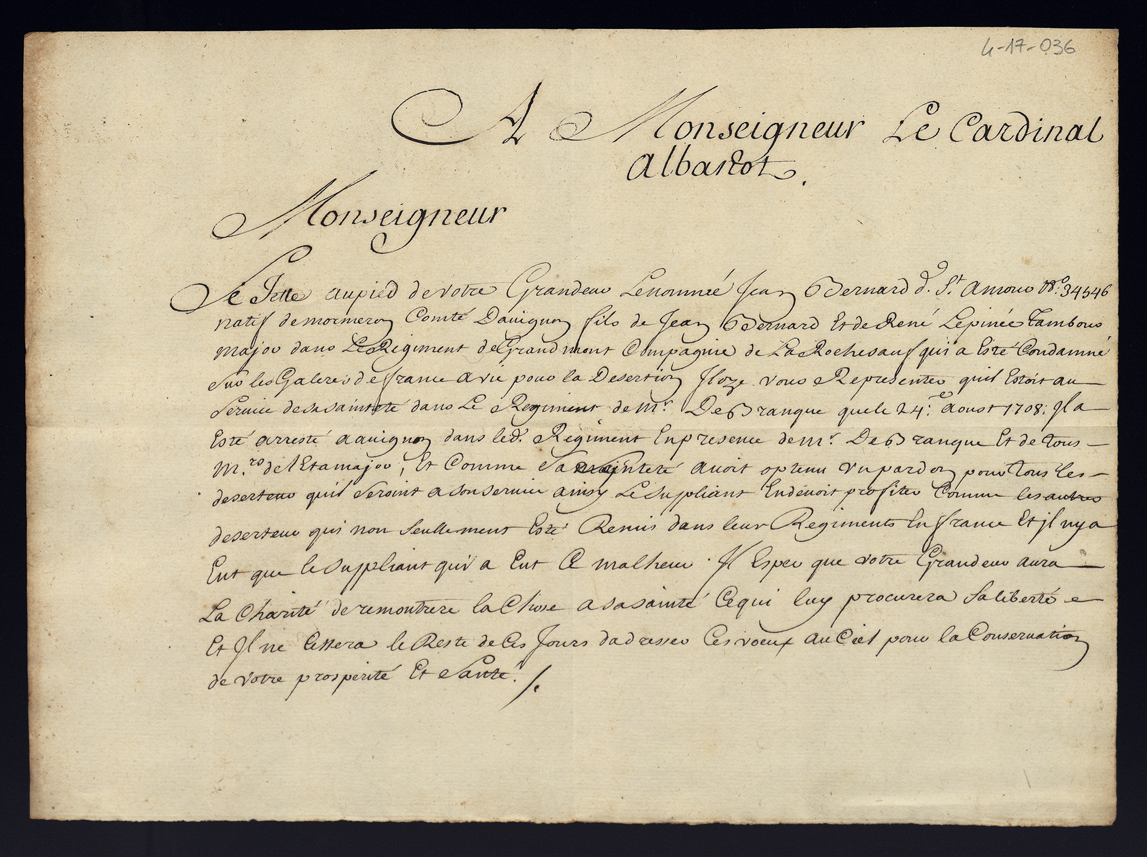 4-17-036
A Monseigneur Le Cardinal
Albastot.
Monseigneur
Se Jette aupied de votre Grandeur Lenommé Jean Bernard d.t St Amour No. 34546
natif de mormeron Comté Davignon fils de Jean Bernard Et de René Lepinée Tambour
major dans Le Regiment de Grandmont Compagnie de La Rochesauf qui a Esté Condamné
sur les Galeres de france avie pour la Desertion Jl oze vous Representer quil Estoit au
Service desasainteté dans Le Regiment de Mr. De Branque que le 24e. aoust 1708. Jl a
Esté arresté aavignon dans led. Regiment En presence de Mr. De Branque Et de tous
M.rs de l'Etamajor, Et Comme Sa sainteté avoit optenu vn pardon pour tous les
deserteur quil Seroint a son service ainsy Le supliant En devoit profiter Comme les autres
deserteur qui non seulement Esté Remis dans leur Regiments En france Et jl ny a
Eut que le suppliant qui a Eut Ce malheur. Jl Esper que votre Grandeur aura
La Charité deremontrere la Chose a sa sainté Ce qui luy procurera Sa liberté e
Et Jl ne Cessera le Reste de Ces Jours dadresser Ces voeux au Ciel pour la Conservation
de votre prosperité Et Santé ./.